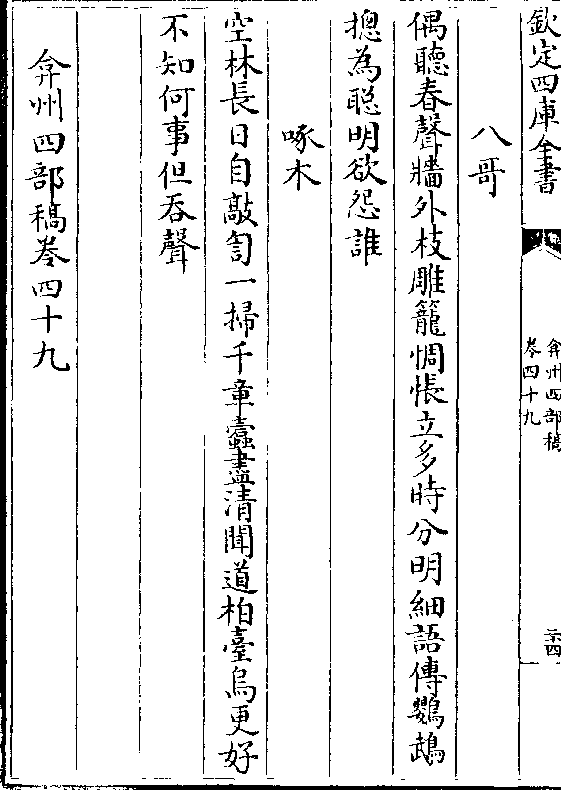 欽定四庫全書
弇州四部稿
卷四十九
二十四
八哥
偶聽春聲牆外枝雕籠惆悵立多時分明細語傳鸚鵡
摠為聡明欲怨誰
啄木
空林長日自敲訇一掃千章蠹盡清聞道柏臺烏更好
不知何事但吞聲
弇州四部稿卷四十九